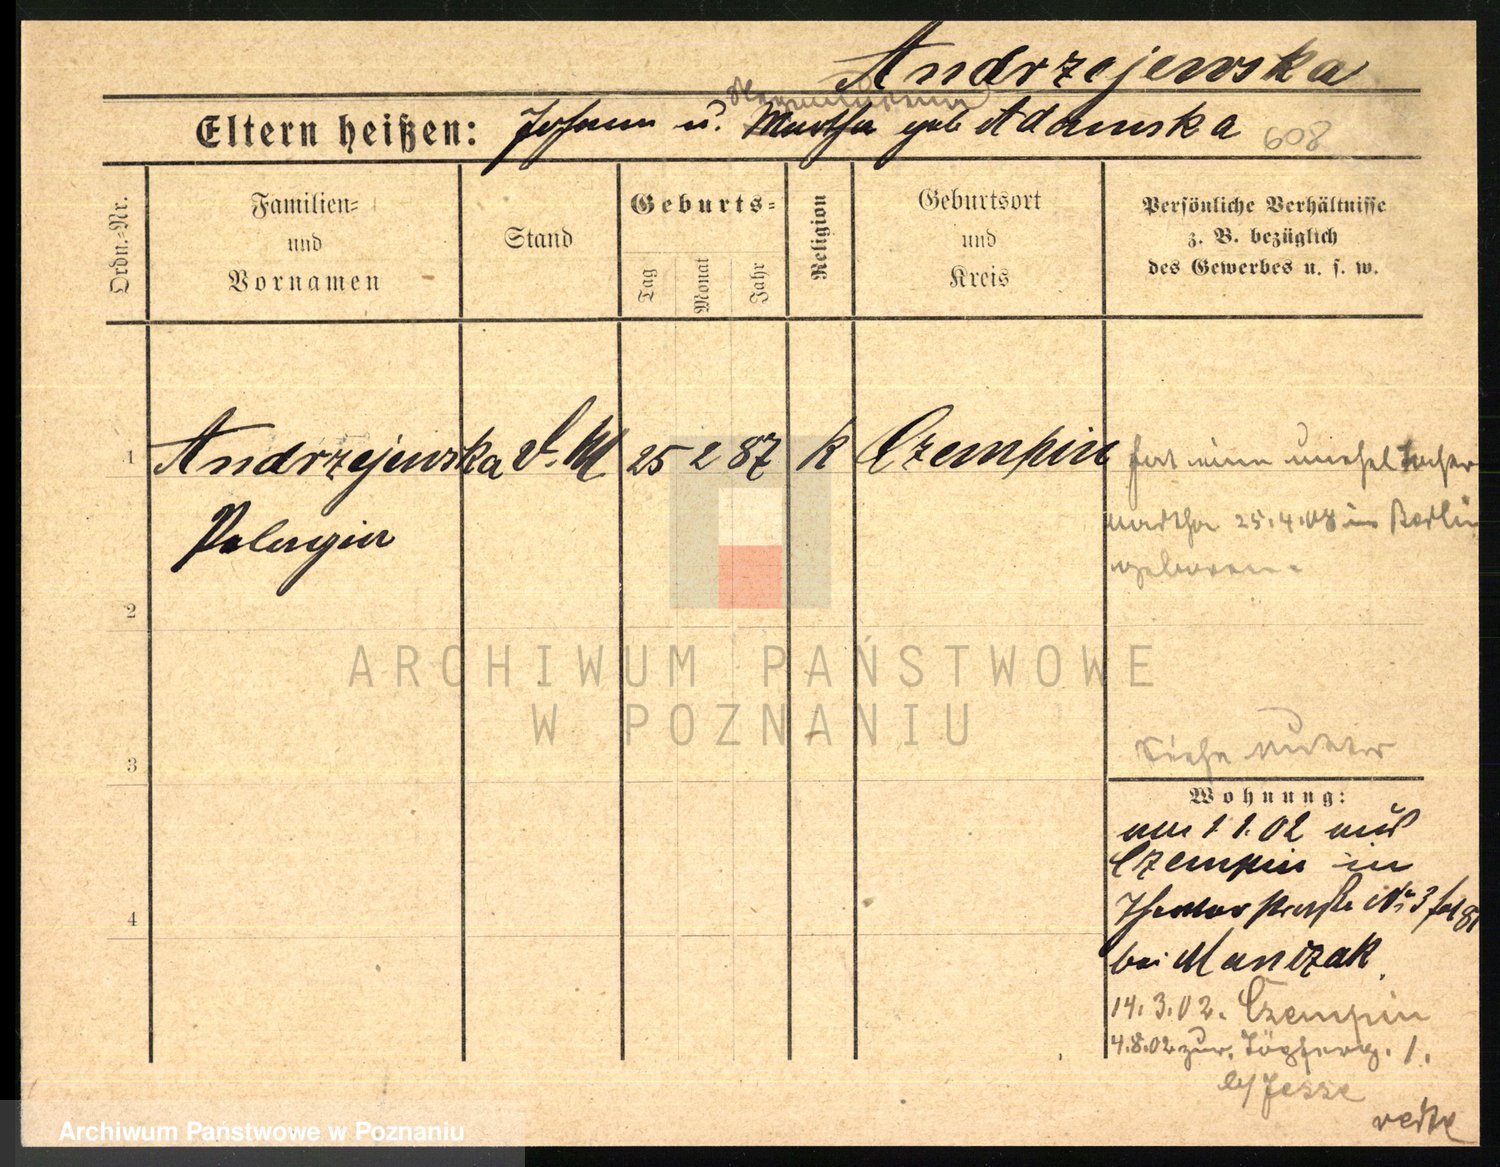 Andrzejewska
Eltern heißen: Johann u. Martha geb Adamska 608
Ordn.=Nr.
Familien=
und
Vornamen
Stand
Geburts=
Tag
Monat
Jahr
Religion
Geburtsort
und
Kreis
Persönliche Verhältnisse
z. B. bezüglich
des Gewerbes u. s. w.
1 Andrzejewska 25 2 87 k Czempin hat eine unehel Tochter
Pelagia
Martha 25.4.08 in Berlin
geboren.
2
ARCHIWUM PAŃSTWOWE
W POZNANIU
Siehe Mutter
3
Wohnung:
am 1 1. 02 aus
Czempin in
Theaterstraße No 3
4
bei Manczak
14.3.02. Czempin
4.8.02 zur. 1.
b/ Jesse
Archiwum Państwowe w Poznaniu